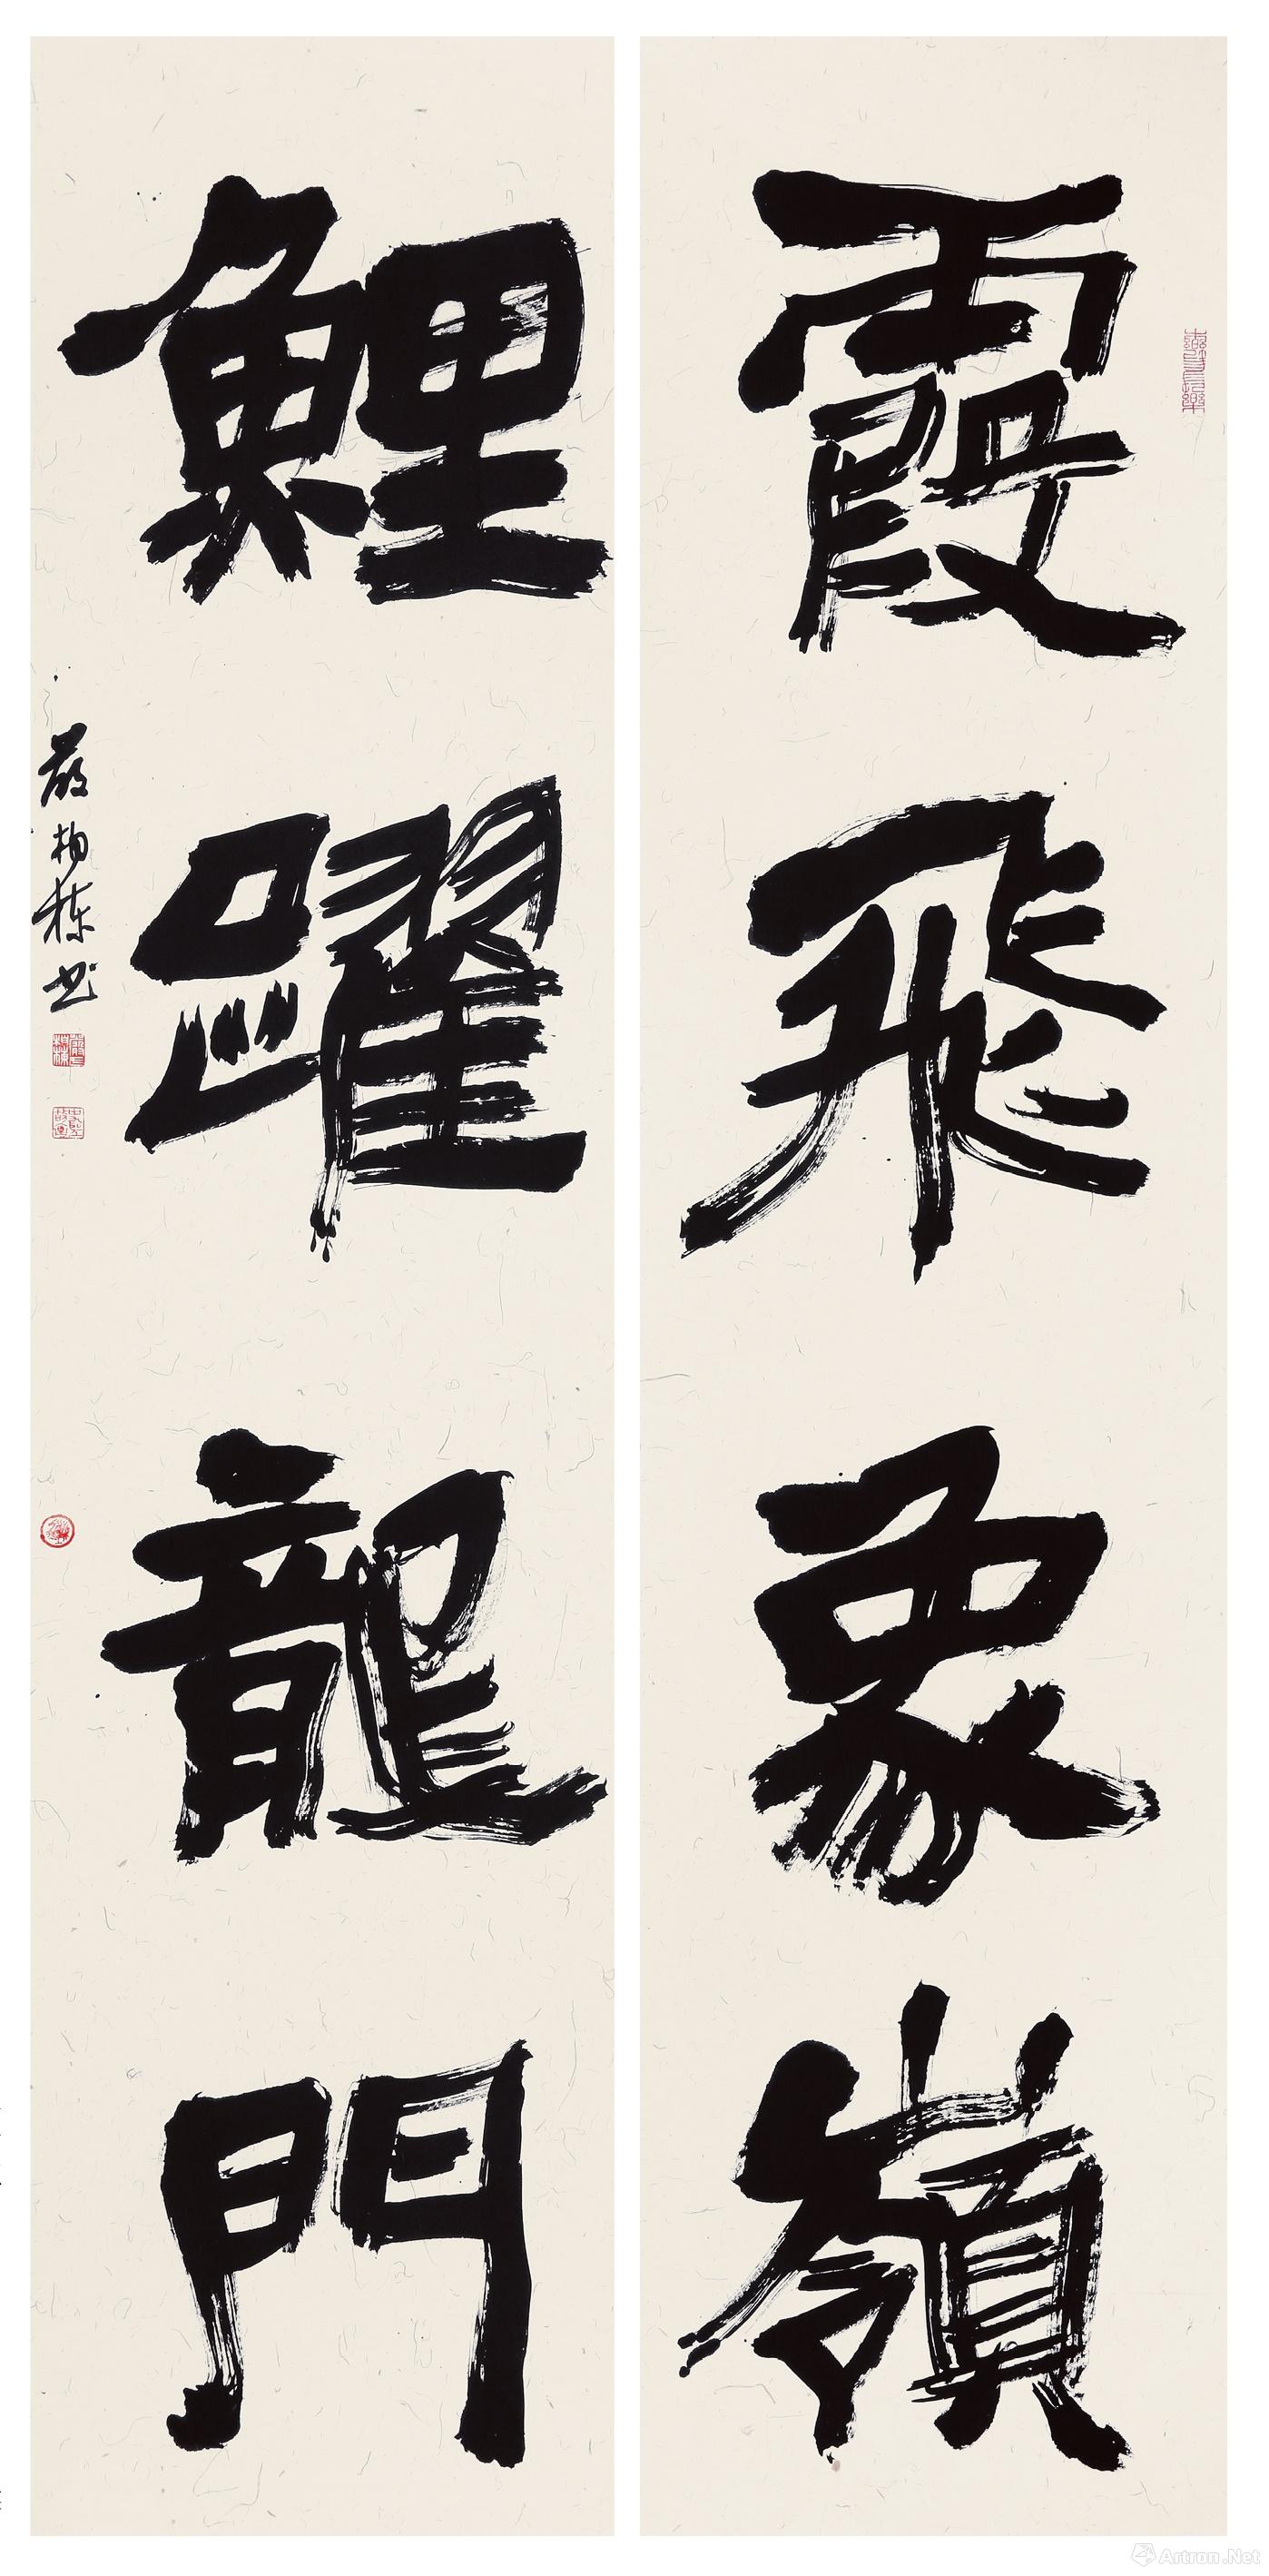 霞飛象嶺
鯉躍龍門
嚴柏棟書
Artron.Net